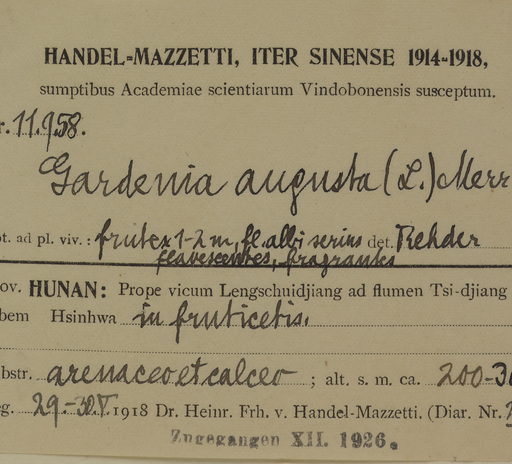 HANDEL-MAZZETTI, ITER SINENSE 1914-1918,
sumptibus Academiae scientiarum Vindobonensis susceptum.
r. 11.958.
Gardenia augusta (L.) Merr
ot. ad pl. viv.: frutex 1-2 m, fl. albi serius det. Rehder
flavescentes, fragrantes
ov. HUNAN: Prope vicum Lengschuidjiang ad flumen Tsi-djiang
bem Hsinhwa in fruticetis.
ubstr. arenaceo et calceo ; alt. s. m. ca. 200-30
g. 29.-30.V. 1918 Dr. Heinr. Frh. v. Handel-Mazzetti. (Diar. Nr.
Zugegangen XII. 1926.